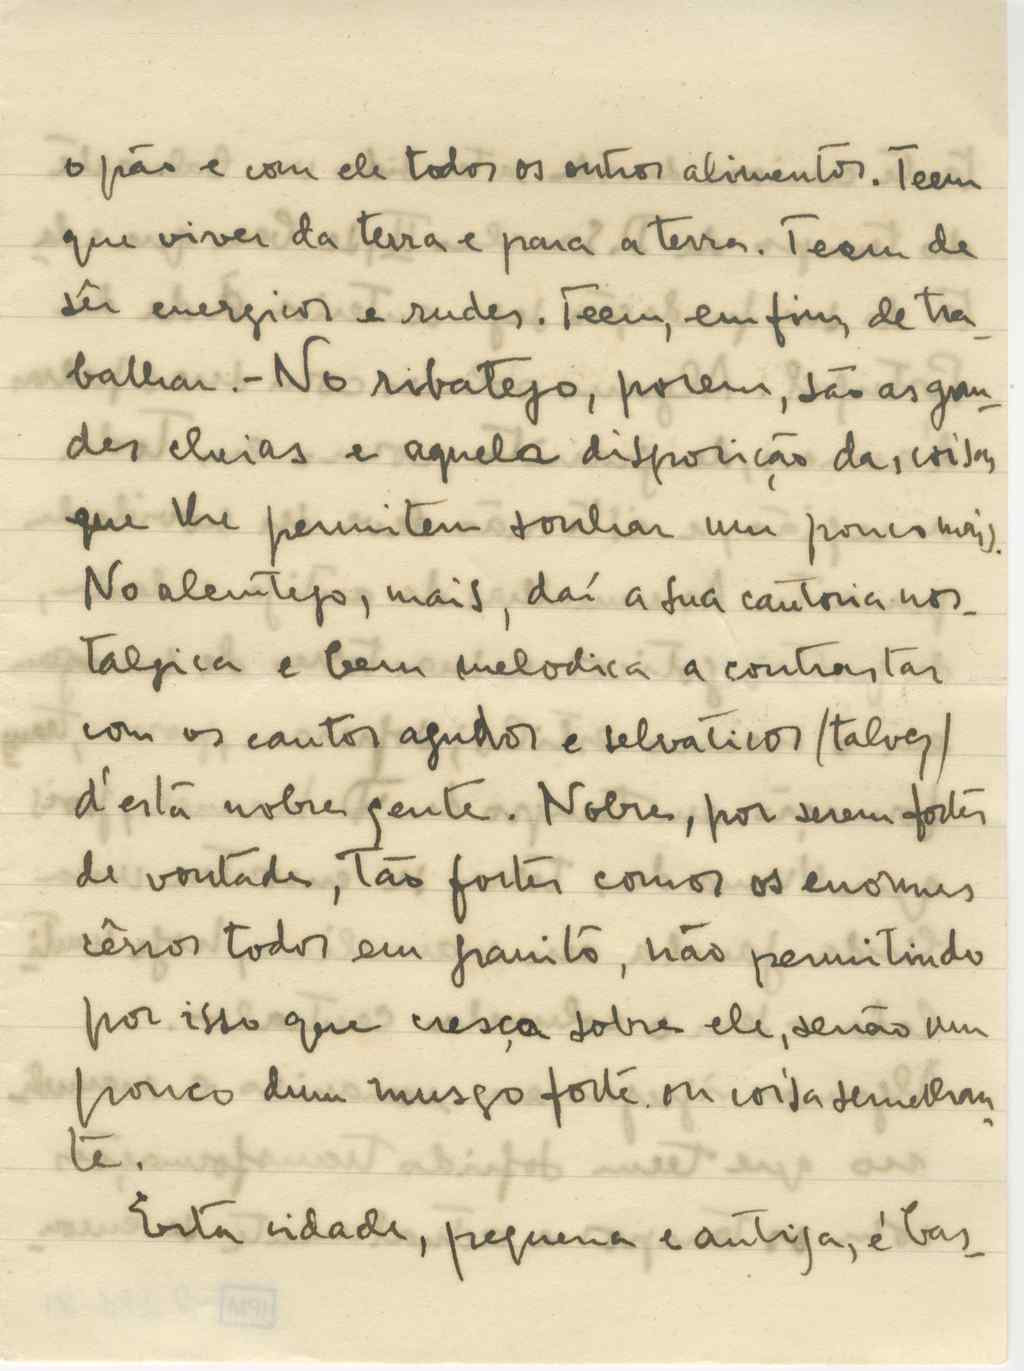 o pão e com ele todos os outros alimentos. Teem
que viver da terra e para a terra. Teem de
sêr energicos e rudes. Teem, emfim, de tra-
balhar. - No ribatejo, porem, são as gran-
des cheias e aquela disposição das coisas
que lhe permitem sonhar um pouco mais.
No alentejo, mais, daí a sua cantoria nos-
talgica e bem melodica a contrastar
com os cantos agudos e selvaticos (talvez)
d'esta nobre gente. Nobre, por serem fortes
de vontade, tão fortes comos os enormes
cêrros todos em granito, não permitindo
por isso que cresça sobre ele, senão um
pouco dum musgo forte ou coisa semelhan-
te.
Esta cidade, pequena e antiga, é bas-